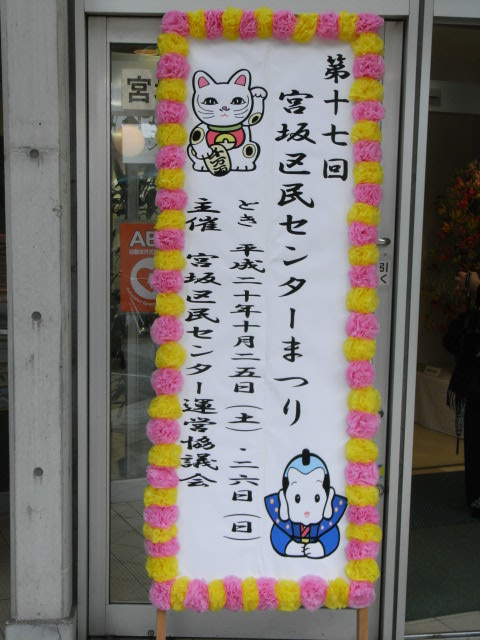 第十七回
宮坂区民センターまつり
とき 平成二十年十月二五日(土)・二六日(日)
主催 宮坂区民センター運営協議会
宮
AE
引く